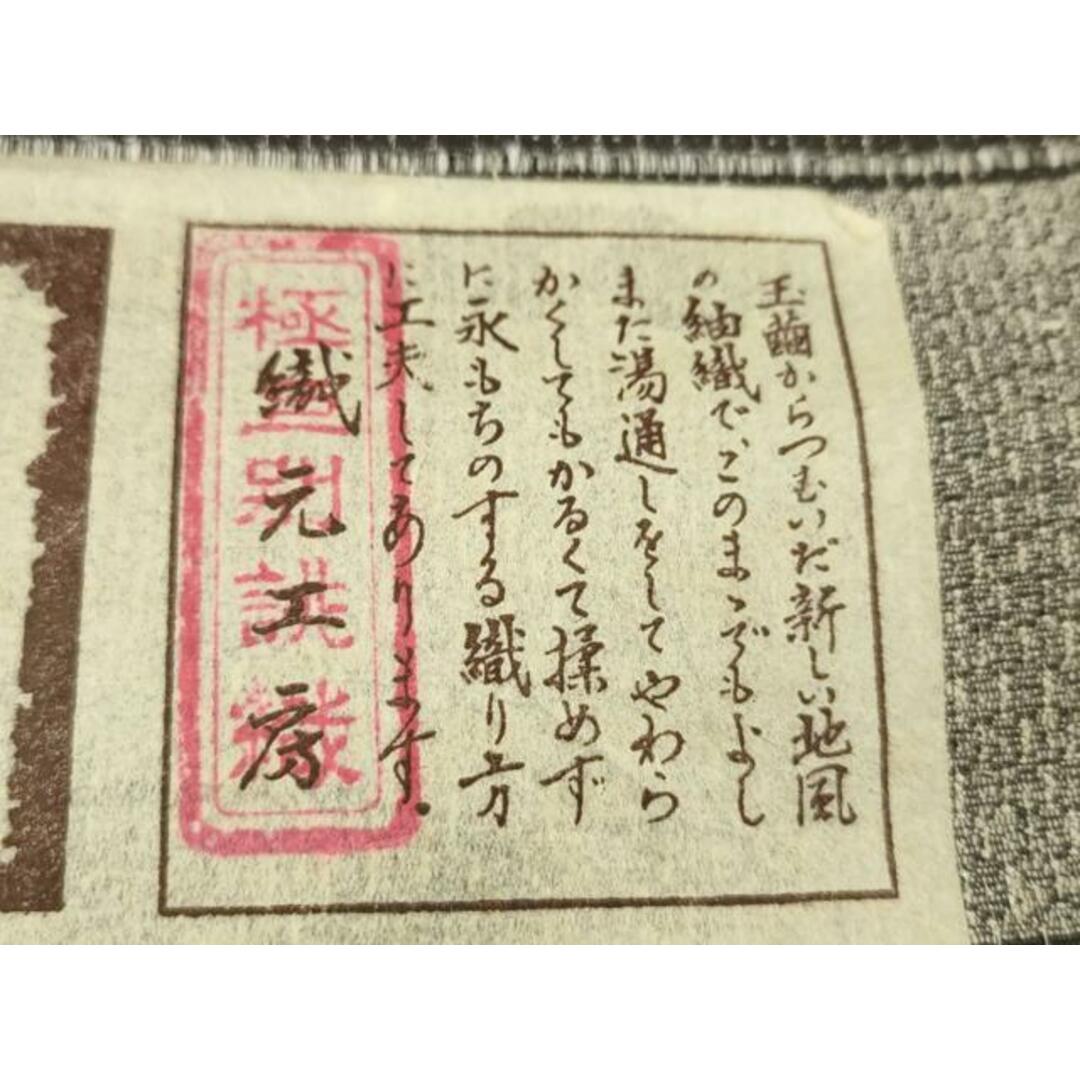 玉繭からつむいだ新しい地風
の紬織で、このまゝでもよし
また湯通しをしてやわら
かくしてもかるくて揉めず
に永もちのする織り方
に工夫してあります。
織元工房
極上別誂織